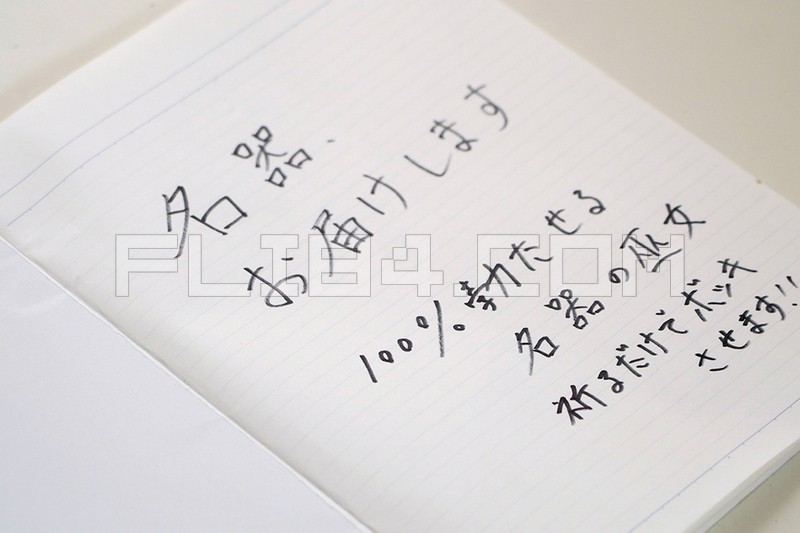 名器、
お届けします
100%勃たせる
名器の巫女
祈るだけでボッキ
させます!!
FLIB4.COM